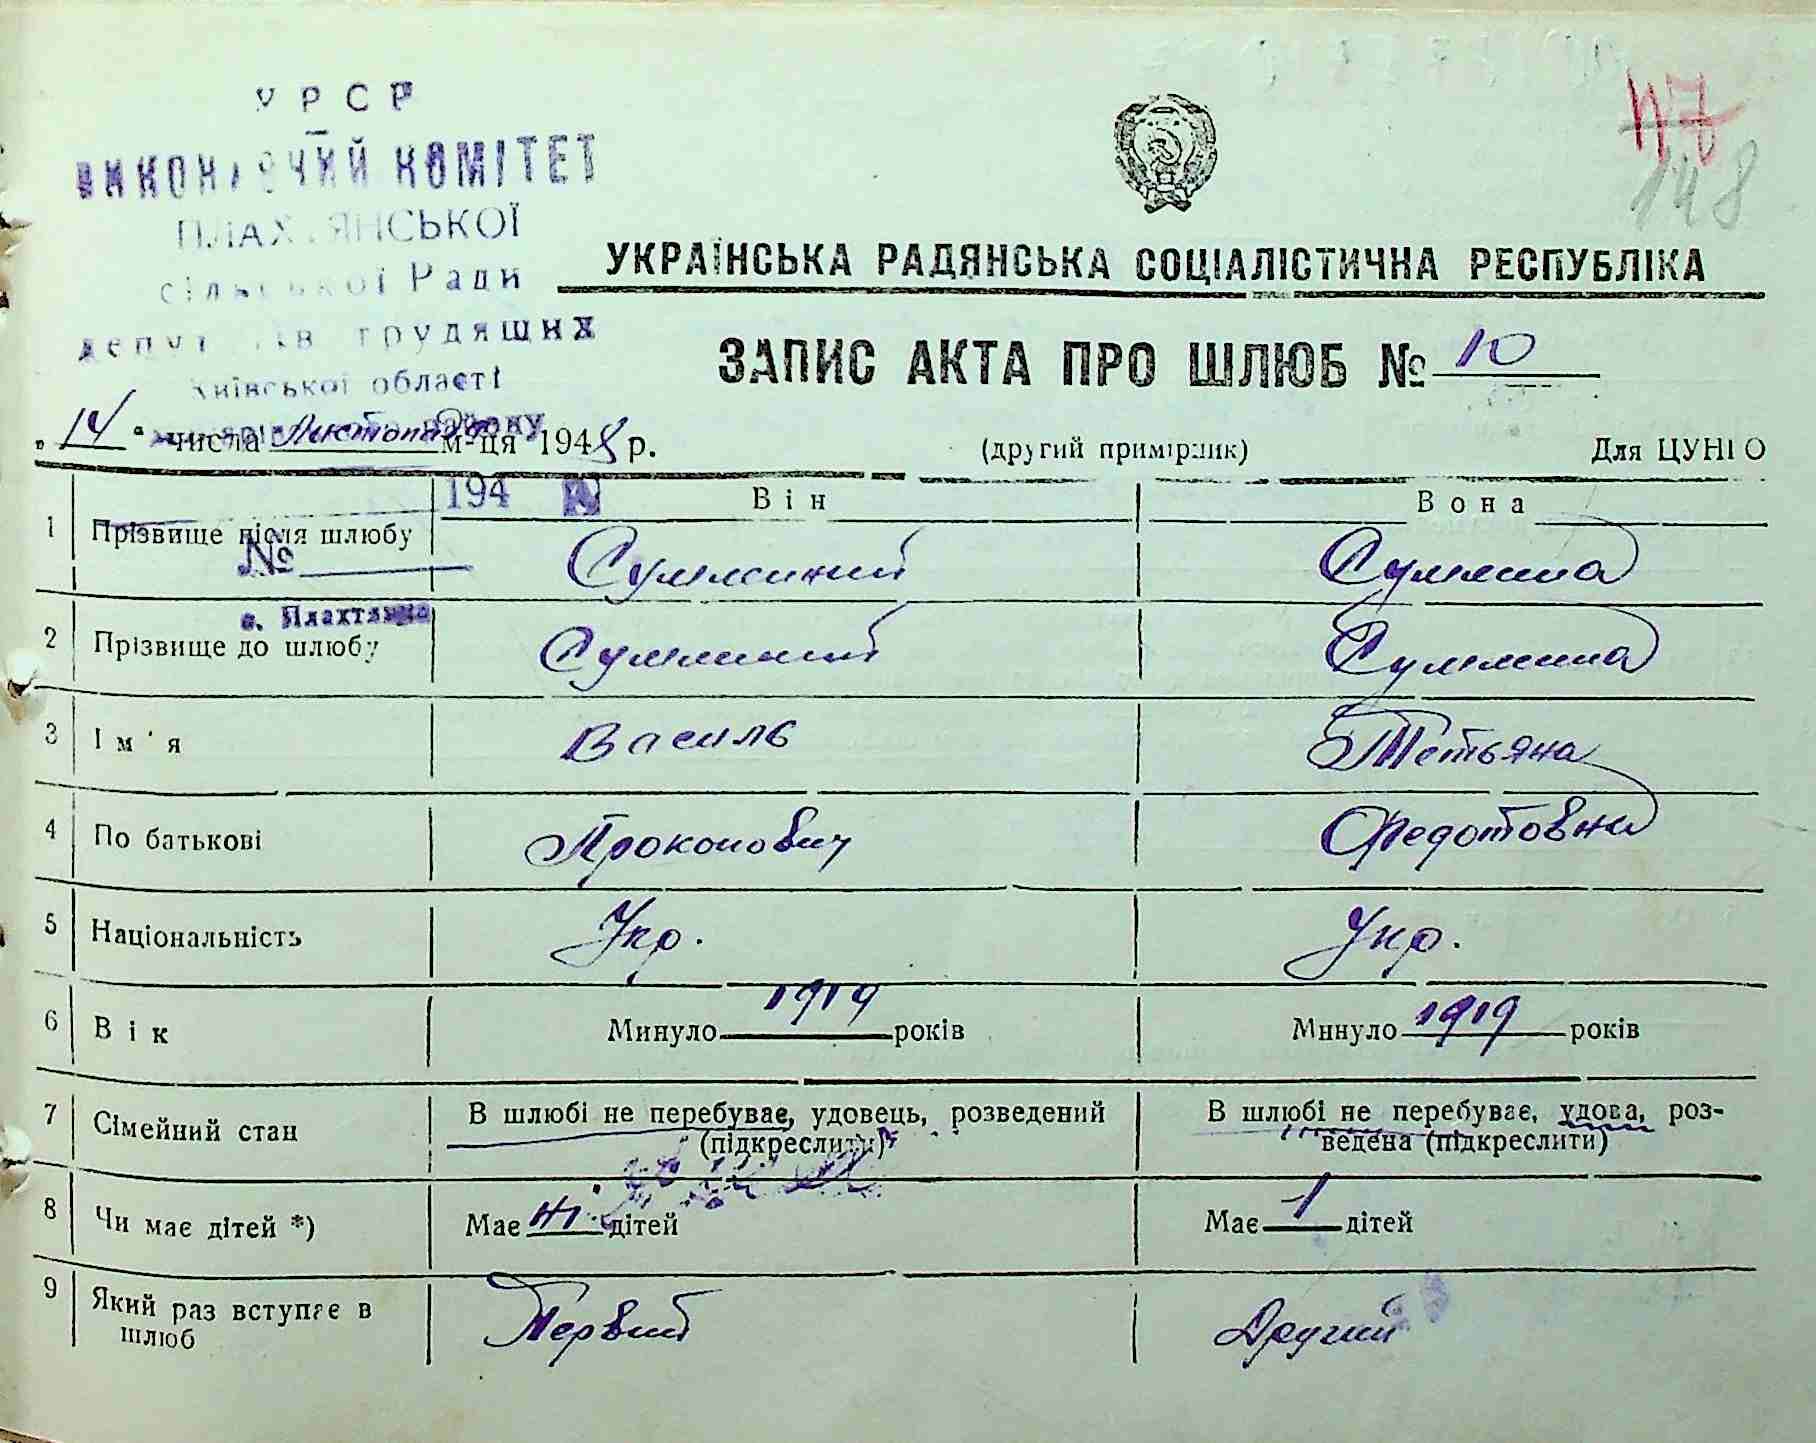 УРСР
ВИКОНАВЧИЙ КОМІТЕТ
ПЛАХТЯНСЬКОЇ
сільської Ради
депутатів трудящих
Київської області
району
194
№
с. Плахтянка
47
148
УКРАЇНСЬКА РАДЯНСЬКА СОЦІАЛІСТИЧНА РЕСПУБЛІКА
ЗАПИС АКТА ПРО ШЛЮБ № 10
„14“ числа Листопада м-ця 1948 р. (другий примірник) Для ЦУНГО
Він Вона
1 Прізвище після шлюбу
2 Прізвище до шлюбу
3 Ім'я Василь Тетьяна
4 По батькові Прокопович Федотовна
5 Національність Укр. Укр.
6 Вік Минуло 1919 років Минуло 1919 років
7 Сімейний стан В шлюбі не перебуває, удовець, розведений (підкреслити) В шлюбі не перебуває, удова, роз-
ведена (підкреслити)
8 Чи має дітей *) Має ні дітей Має 1 дітей
9 Який раз вступає в
шлюб Первий Другий